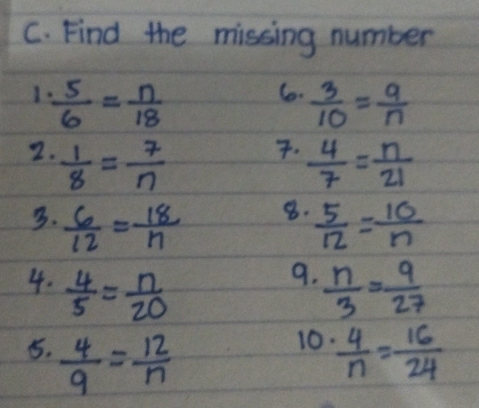 C. Find the missing number
1. 5/6 = n/18
2. 1/8 = 7/n
3. 6/12 = 18/n
4. 4/5 = n/20
5. 4/9 = 12/n
6. 3/10 = 9/n
7. 4/7 = n/21
8. 5/12 = 10/n
9. n/3 = 9/27
10. 4/n = 16/24